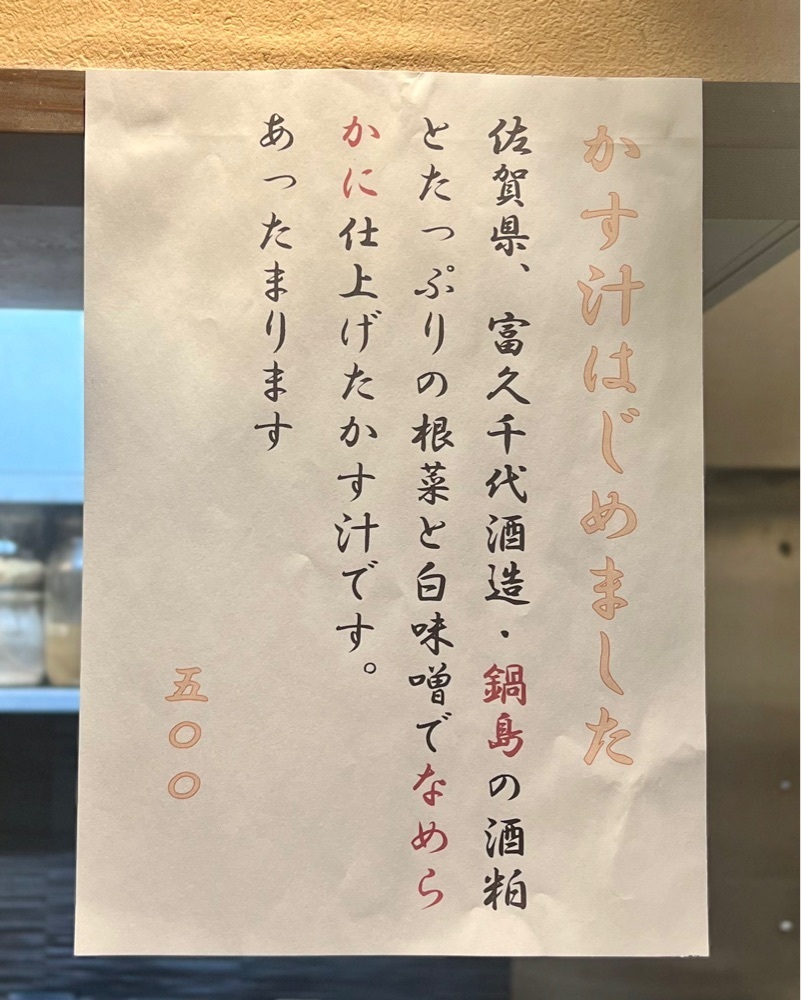 かす汁はじめました
佐賀県、富久千代酒造・鍋島の酒粕
とたっぷりの根菜と白味噌でなめら
かに仕上げたかす汁です。
あったまります
五〇〇